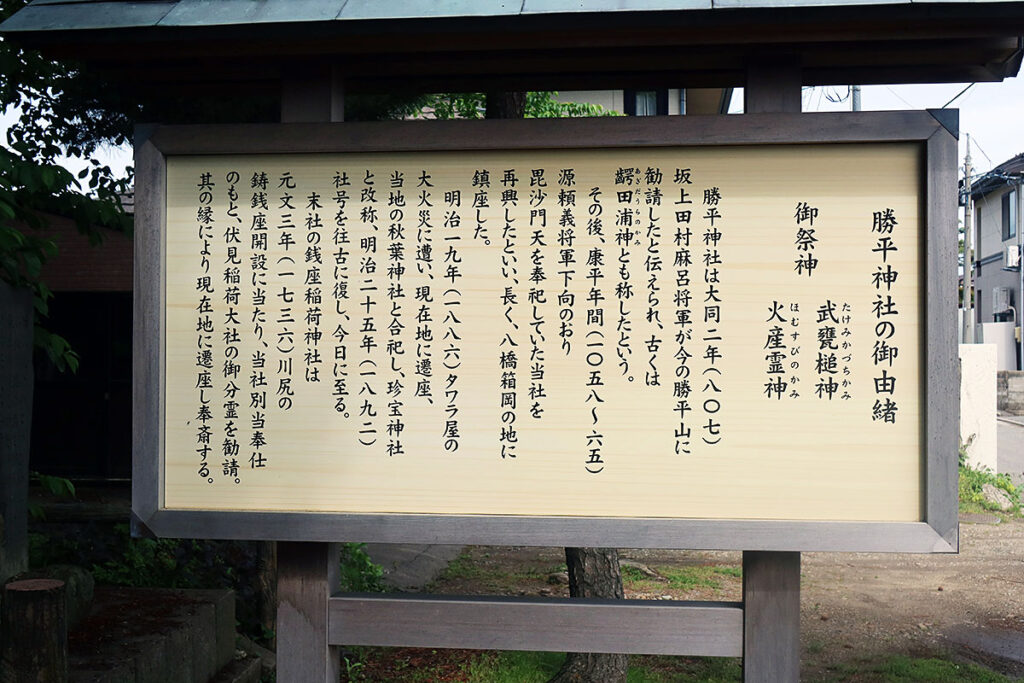 勝平神社の御由緒
たけみかづちかみ
武甕槌神
御祭神
ほむすびのかみ
火産霊神
勝平神社は大同二年(八〇七)
坂上田村麻呂将軍が今の勝平山に
勧請したと伝えられ、古くは
あぎだうらのかみ
齶田浦神とも称したという。
その後、康平年間(一〇五八〜六五)
源頼義将軍下向のおり
毘沙門天を奉祀していた当社を
再興したといい、長く、八橋箱岡の地に
鎮座した。
明治一九年(一八八六)タワラ屋の
大火災に遭い、現在地に遷座、
当地の秋葉神社と合祀し、珍宝神社
と改称、明治二十五年(一八九二)
社号を往古に復し、今日に至る。
末社の銭座稲荷神社は
元文三年(一七三六)川尻の
鋳銭座開設に当たり、当社別当奉仕
のもと、伏見稲荷大社の御分霊を勧請。
其の縁により現在地に遷座し奉斎する。